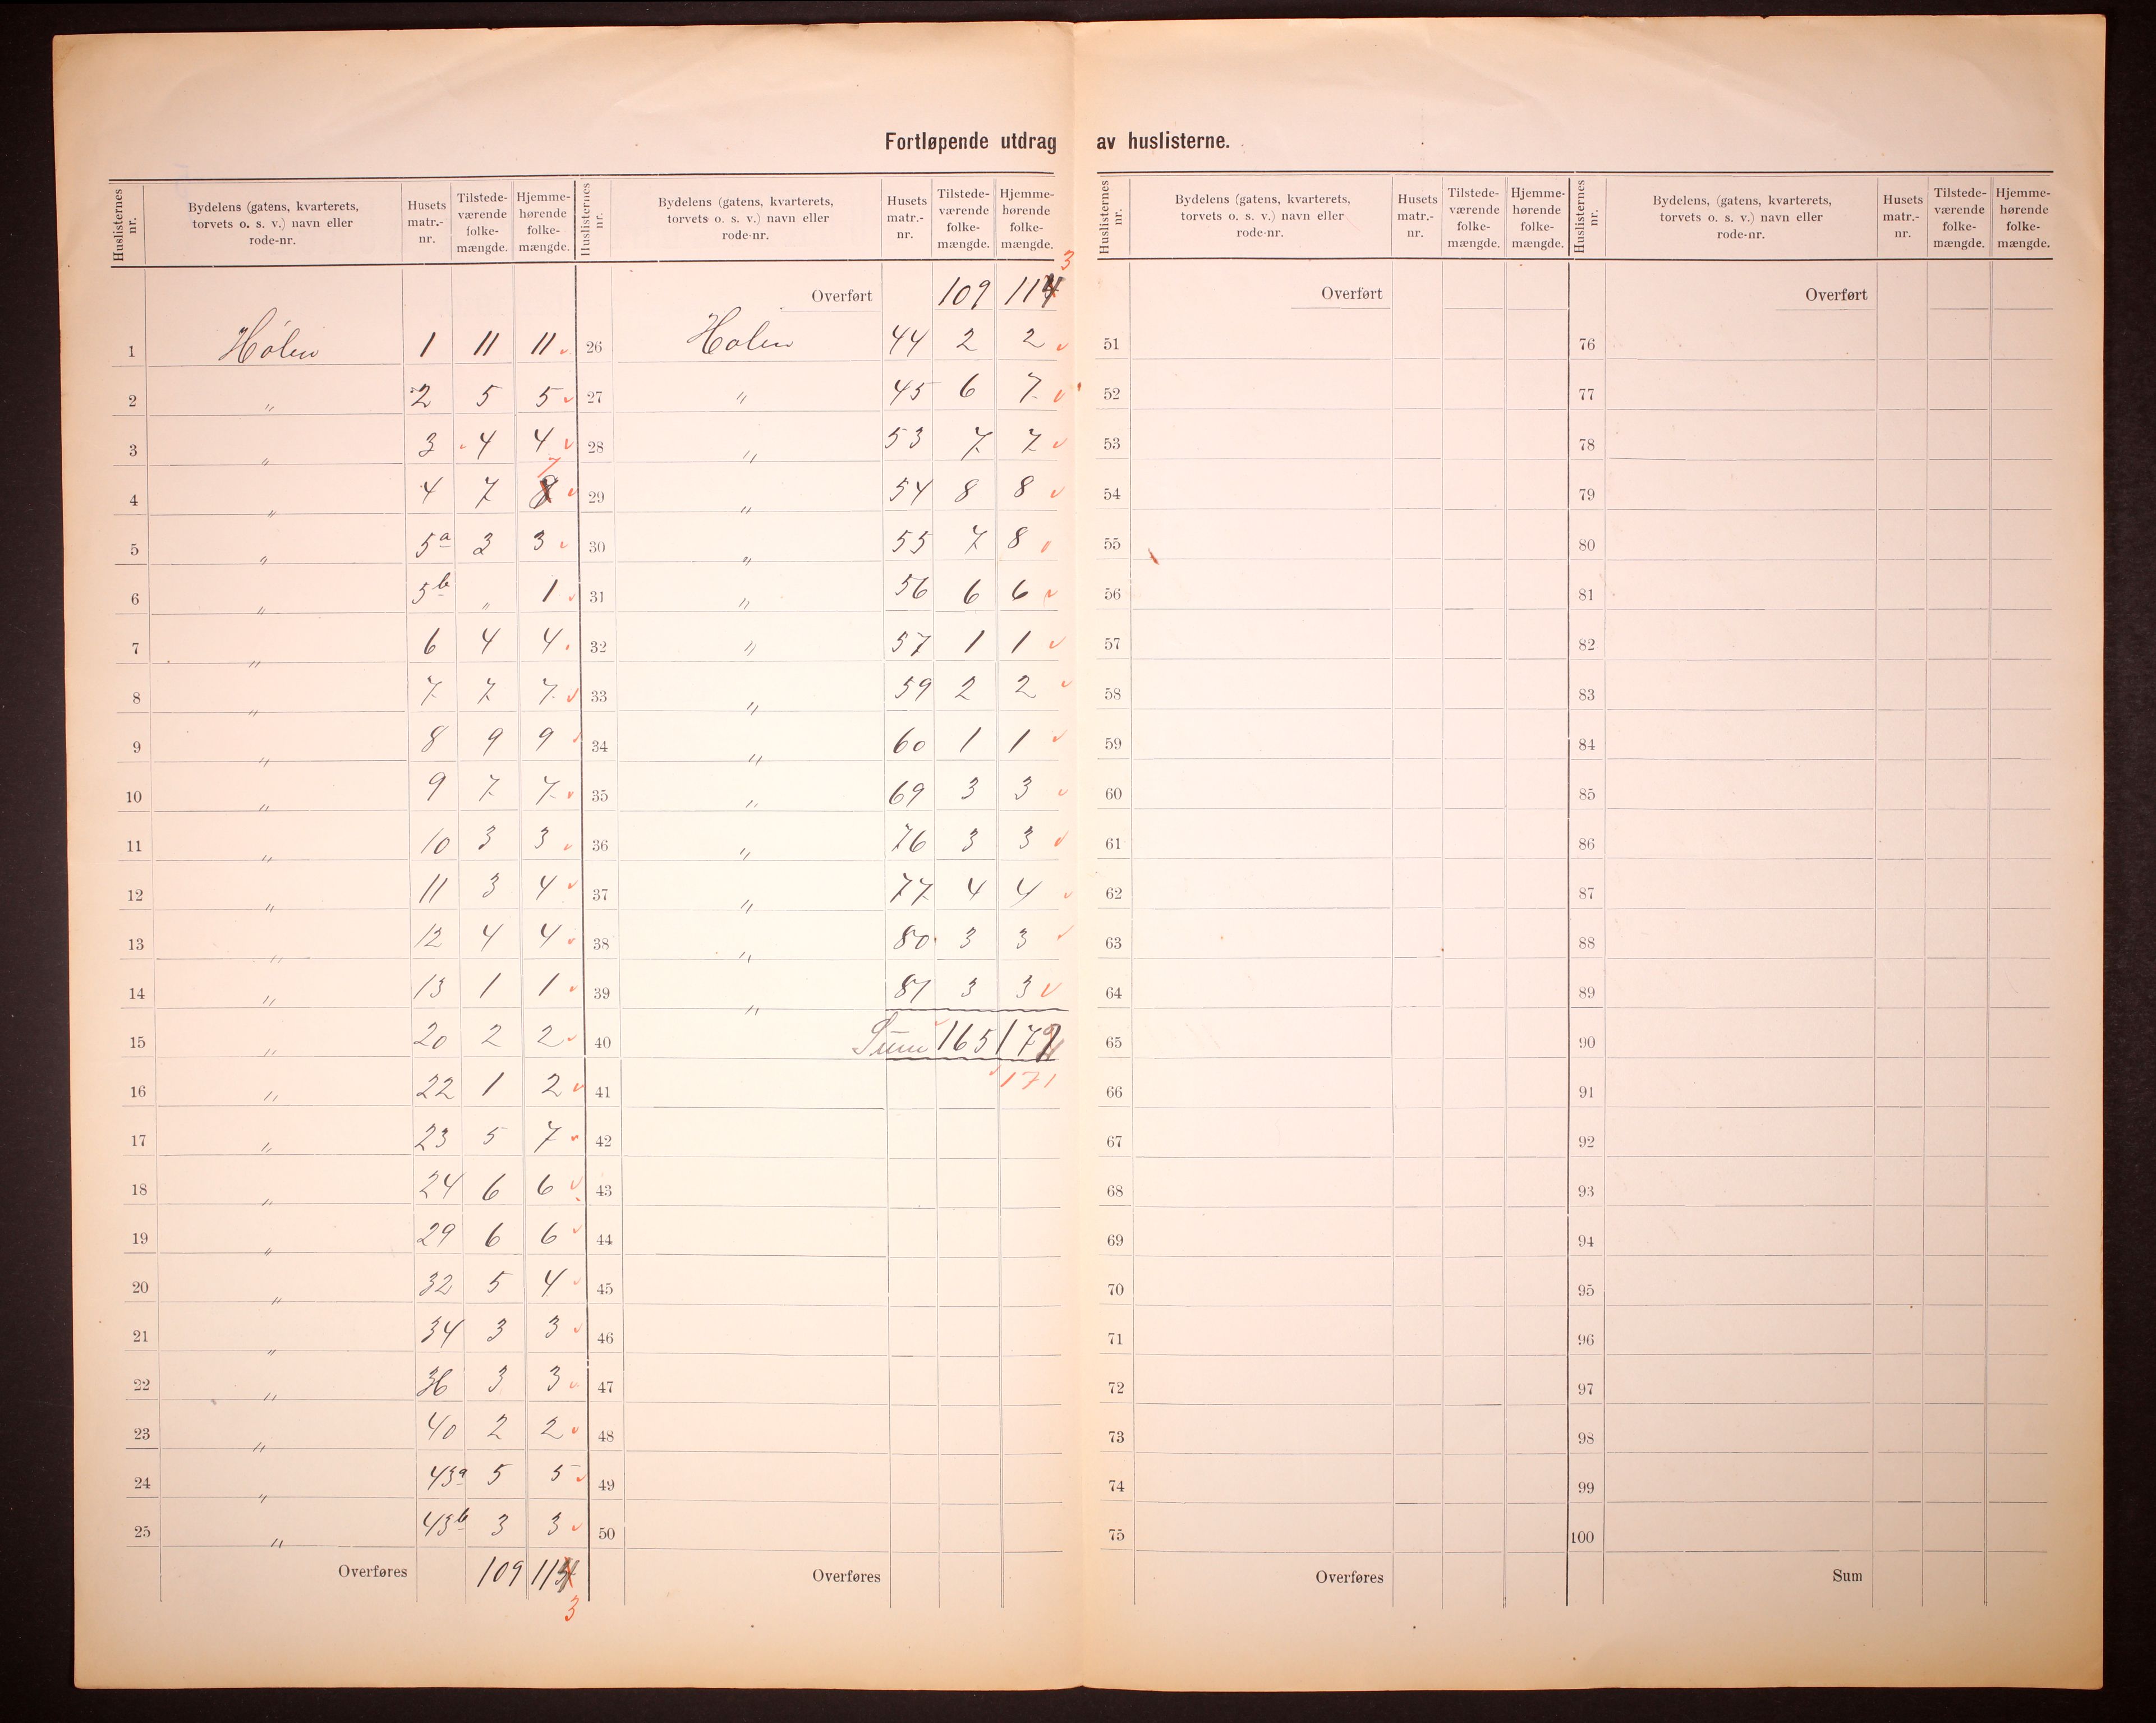 Fortløpende utdrag av huslisterne.
Huslisternes nr. Bydelens (gatens, kvarterets, torvets o. s. v.) navn eller rode-nr. Husets matr.-nr. Tilstede-værende folke-mængde. Hjemme-hørende folke-mængde.
1 Hølen 1 11 11
2 " 2 5 5
3 " 3 4 4
4 " 4 7 8 7
5 " 5a 3 3
6 " 5b " 1
7 " 6 4 4
8 " 7 7 7
9 " 8 9 9
10 " 9 7 7
11 " 10 3 3
12 " 11 3 4
13 " 12 4 4
14 " 13 1 1
15 " 20 2 2
16 " 22 1 2
17 " 23 5 7
18 " 24 6 6
19 " 29 6 6
20 " 32 5 4
21 " 34 3 3
22 " 36 3 3
23 " 40 2 2
24 " 43a 5 5
25 " 43b 3 3
Overføres 109 114
3
Huslisternes nr. Bydelens (gatens, kvarterets, torvets o. s. v.) navn eller rode-nr. Husets matr.-nr. Tilstede-værende folke-mængde. Hjemme-hørende folke-mængde.
3
Overført 109 114
26 Hølen 44 2 2
27 " 45 6 7
28 " 53 7 7
29 " 54 8 8
30 " 55 7 8
31 " 56 6 6
32 " 57 1 1
33 " 59 2 2
34 " 60 1 1
35 " 69 3 3
36 " 76 3 3
37 " 77 4 4
38 " 80 3 3
39 " 81 3 3
40 Sum 165 172
41 171
42
43
44
45
46
47
48
49
50
Overføres
Huslisternes nr. Bydelens (gatens, kvarterets, torvets o. s. v.) navn eller rode-nr. Husets matr.-nr. Tilstede-værende folke-mængde. Hjemme-hørende folke-mængde.
Overført
51
52
53
54
55
56
57
58
59
60
61
62
63
64
65
66
67
68
69
70
71
72
73
74
75
Overføres
Huslisternes nr. Bydelens, (gatens, kvarterets, torvets o. s. v.) navn eller rode-nr. Husets matr.-nr. Tilstede-værende folke-mængde. Hjemme-hørende folke-mængde.
Overført
76
77
78
79
80
81
82
83
84
85
86
87
88
89
90
91
92
93
94
95
96
97
98
99
100
Sum